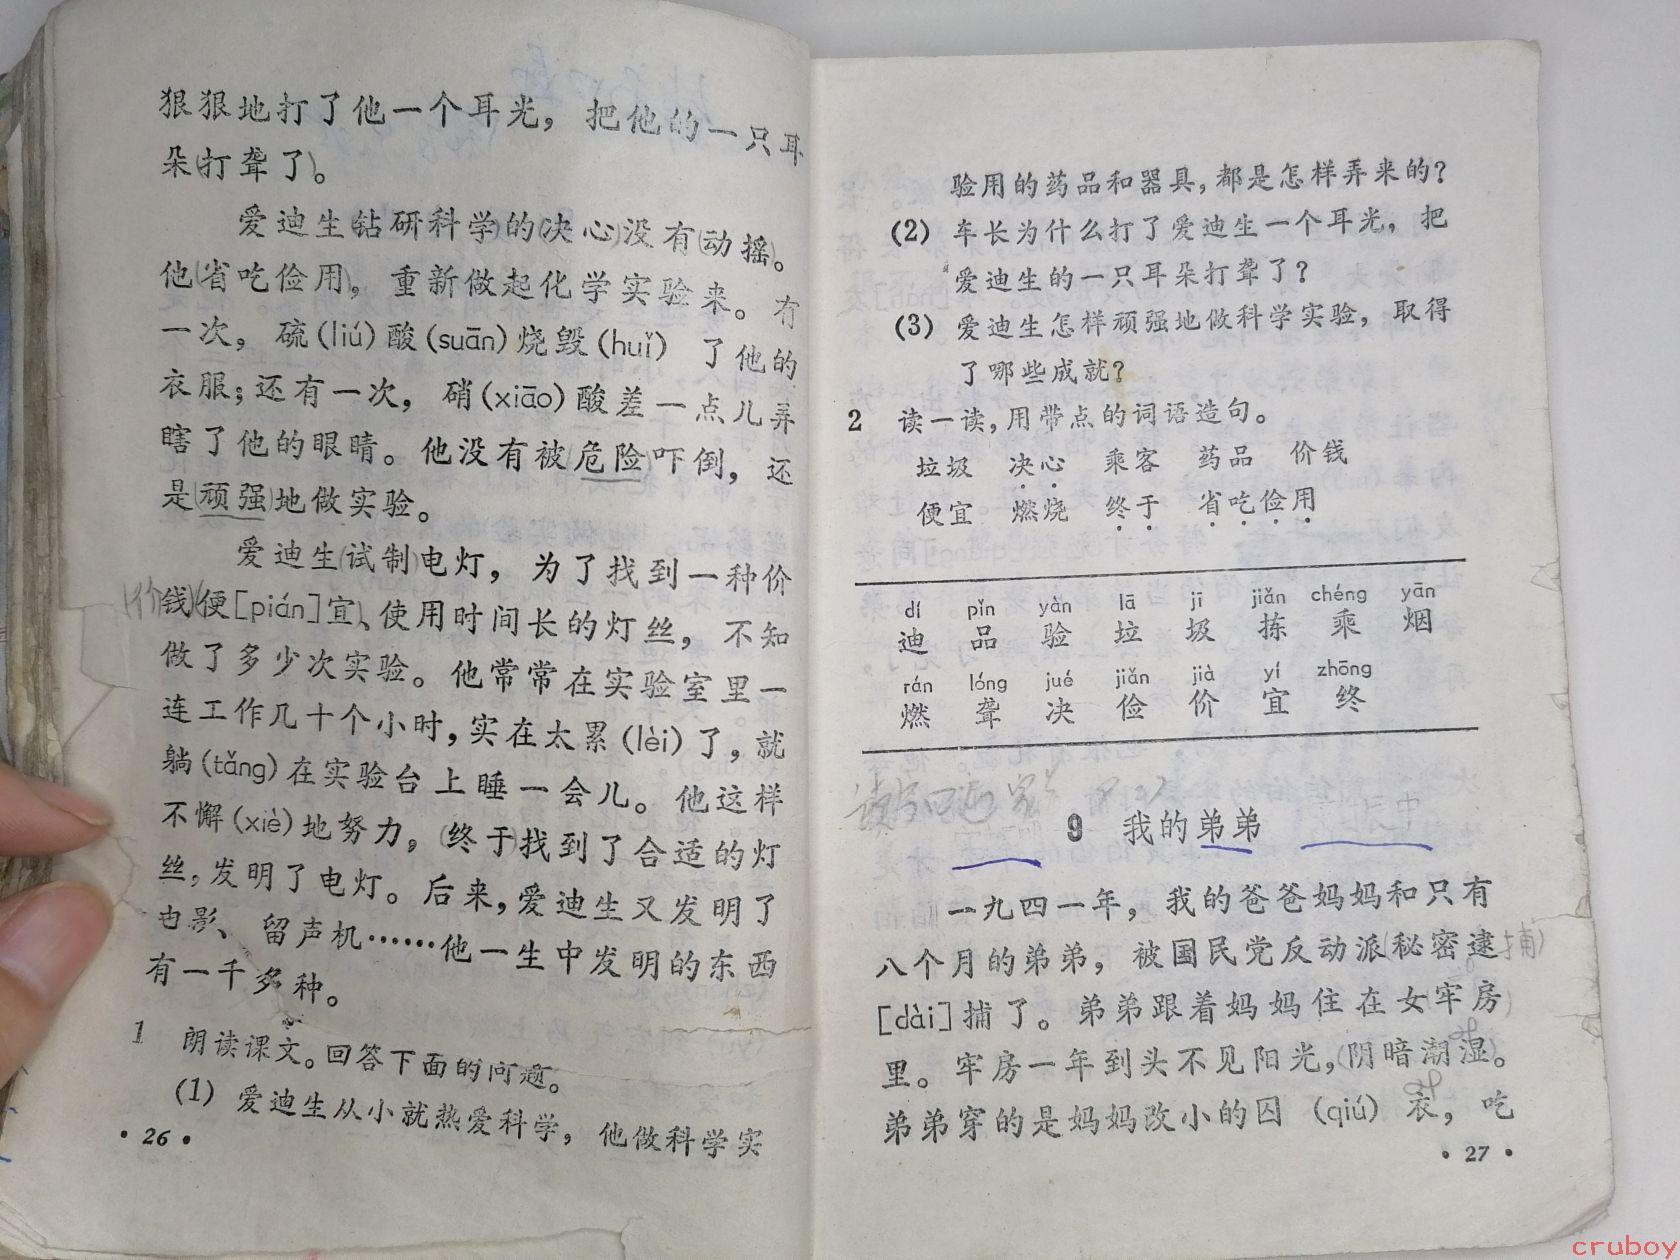 狠狠地打了他一个耳光，把他的一只耳
朵打聋了。
爱迪生钻研科学的决心没有动摇。
他省吃俭用，重新做起化学实验来。有
一次，硫(liú)酸(suān)烧毁(huǐ)了他的
衣服；还有一次，硝(xiāo)酸差一点儿弄
瞎了他的眼睛。他没有被危险吓倒，还
是顽强地做实验。
爱迪生试制电灯，为了找到一种价
(价钱)便[pián]宜、使用时间长的灯丝，不知
做了多少次实验。他常常在实验室里一
连工作几十个小时，实在太累(lèi)了，就
躺(tǎng)在实验台上睡一会儿。他这样
不懈(xiè)地努力，终于找到了合适的灯
丝，发明了电灯。后来，爱迪生又发明了
电影、留声机……他一生中发明的东西
有一千多种。
1 朗读课文。回答下面的问题。
(1) 爱迪生从小就热爱科学，他做科学实
·26·
验用的药品和器具，都是怎样弄来的？
(2) 车长为什么打了爱迪生一个耳光，把
爱迪生的一只耳朵打聋了？
(3) 爱迪生怎样顽强地做科学实验，取得
了哪些成就？
2 读一读，用带点的词语造句。
垃圾 决心 乘客 药品 价钱
便宜 燃烧 终于 省吃俭用
dí pǐn yàn lā jī jiǎn chéng yān
迪 品 验 垃 圾 拣 乘 烟
rán lóng jué jiǎn jià yí zhōng
燃 聋 决 俭 价 宜 终
9 我的弟弟
一九四一年，我的爸爸妈妈和只有
八个月的弟弟，被国民党反动派秘密逮捕
[dài]捕了。弟弟跟着妈妈住在女牢房
里。牢房一年到头不见阳光，阴暗潮湿。
弟弟穿的是妈妈改小的囚(qiú)衣，吃
·27·
cruboy